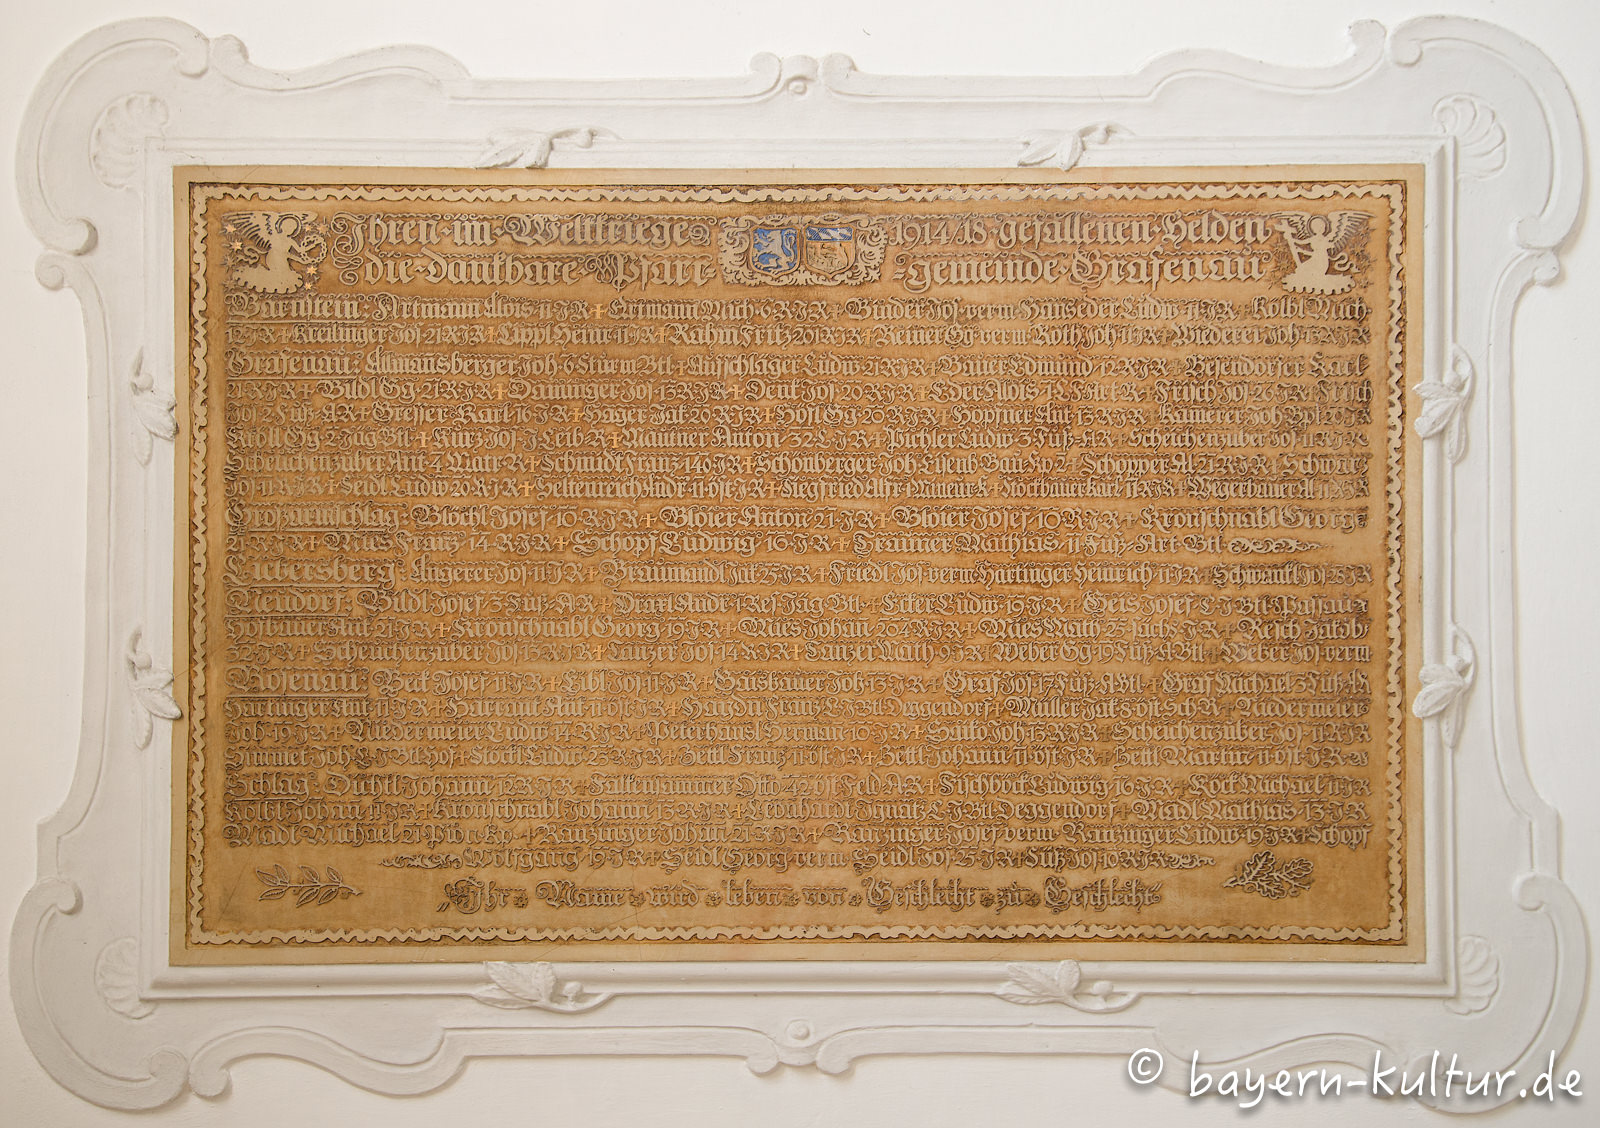 Ihren im Weltkriege 1914/18 gefallenen Helden
die dankbare Pfarr- gemeinde Grafenau
Bärnstein: Artmann Alois 11 JR + Artmann Mich 6 RJR + Binder Jos verm Hanseder Ludw 11 JR + Kolbl Mich
Kreilinger Jos 21 RJR + Lippl Heinr 11 JR + Rahm Fritz 20 RJR + Reiner Gg verm Roth Joh 11 JR + Wiederer Joh 13 RJR
Grafenau: Allmansberger Joh 6 Sturm Btl + Aufschläger Ludw 21 RJR + Bauer Edmund 12 RJR + Besendorfer Karl
21 RJR + Bildl Gg 21 RJR + Daminger Jos 13 RJR + Denk Jos 20 RJR + Eder Alois + Frisch Jos + Frisch
Jos 2 Fuß AR + Greßer Karl 16 JR + Hager Jak 20 RJR + Höfl Gg 20 RJR + Hopfner Ant 13 RJR + Kamerer Joh
Knoll Gg 2 Jäg Btl + Kurz Jos J Leib R + Mautner Anton 32 L J R + Pichler Ludw 3 Fuß AR + Scheuchenzuber Jos 11 RJR
Scheuchenzuber Ant + Schmidt Franz 140 JR + Schönberger Joh Eisenb Bau Kp 2 + Schopper Al 21 RJR + Schwarz
Jos 11 RJR + Seidl Ludw 20 RJR + Seltenreich Ludr 11 öst JR + Siegfried Alfr + Stockbauer Karl 11 RJR + Wegerbauer Al
Großarmschlag: Blöchl Josef 10 RJR + Bloier Anton 21 JR + Bloier Josef 10 RJR + Kronschnabl Georg
21 RJR + Mies Franz 14 RJR + Schopf Ludwig 16 JR + Trauner Mathias 11 Fuß Art Btl
Liebersberg: Angerer Jos 11 JR + Braumandl Jak 25 JR + Friedl Jos verm Hartinger Heinrich 11 JR + Schwankl Jos 25 JR
Neudorf: Bildl Josef 3 Fuß AR + Draxl Andr 1 Res Jäg Btl + Ecker Ludw 19 JR + Geis Josef L J Btl Passau
Hofbauer Ant 21 JR + Kronschnabl Georg 19 JR + Mies Johan 204 RJR + Mies Math 23 sächs JR + Resch Jakob
32 JR + Scheuchenzuber Jos 13 RJR + Tanzer Jos 14 RJR + Tanzer Math 9 JR Weber Gg 19 Fuß ABtl + Weber Jos verm
Rosenau: Beck Josef 11 JR + Eibl Jos 11 JR + Gaisbauer Joh 13 JR + Graf Jos 17 Fuß ABtl + Graf Michael 3 Fuß A
Hartinger Ant 11 JR + Harrant Ant 11 öst JR + Haydn Franz L J Btl Deggendorf + Müller Jak 8 öst Sch R + Niedermeier
Joh 19 JR + Niedermeier Ludw 14 RJR + Peterhansl Herman 10 JR + Saiko Joh 13 RJR + Scheuchenzuber Jos 11 RJR
Simmet Joh L J Btl Hof + Stöckl Ludw 23 RJR + Zettl Franz 11 öst JR + Zettl Johann 11 öst JR + Zettl Martin 11 öst JR
Schlag: Dichtl Johann 12 RJR + Falkenhammer Otto 42 öst Feld AR + Fischböck Ludwig 16 JR + Köck Michael 11 JR
Kölbl Johann 11 JR + Kronschnabl Johann 13 RJR + Leonhardt Ignatz L J Btl Deggendorf + Madl Mathias 13 JR
Madl Michael 21 + Ranzinger Johan 21 RJR + Ranzinger Josef verm Ranzinger Ludw 19 JR + Schopf
Wolfgang 19 JR + Seidl Georg verm Seidl Jos 25 JR + Süß Jos 10 RJR
„Ihr Name wird leben von Geschlecht zu Geschlecht“
© bayern-kultur.de